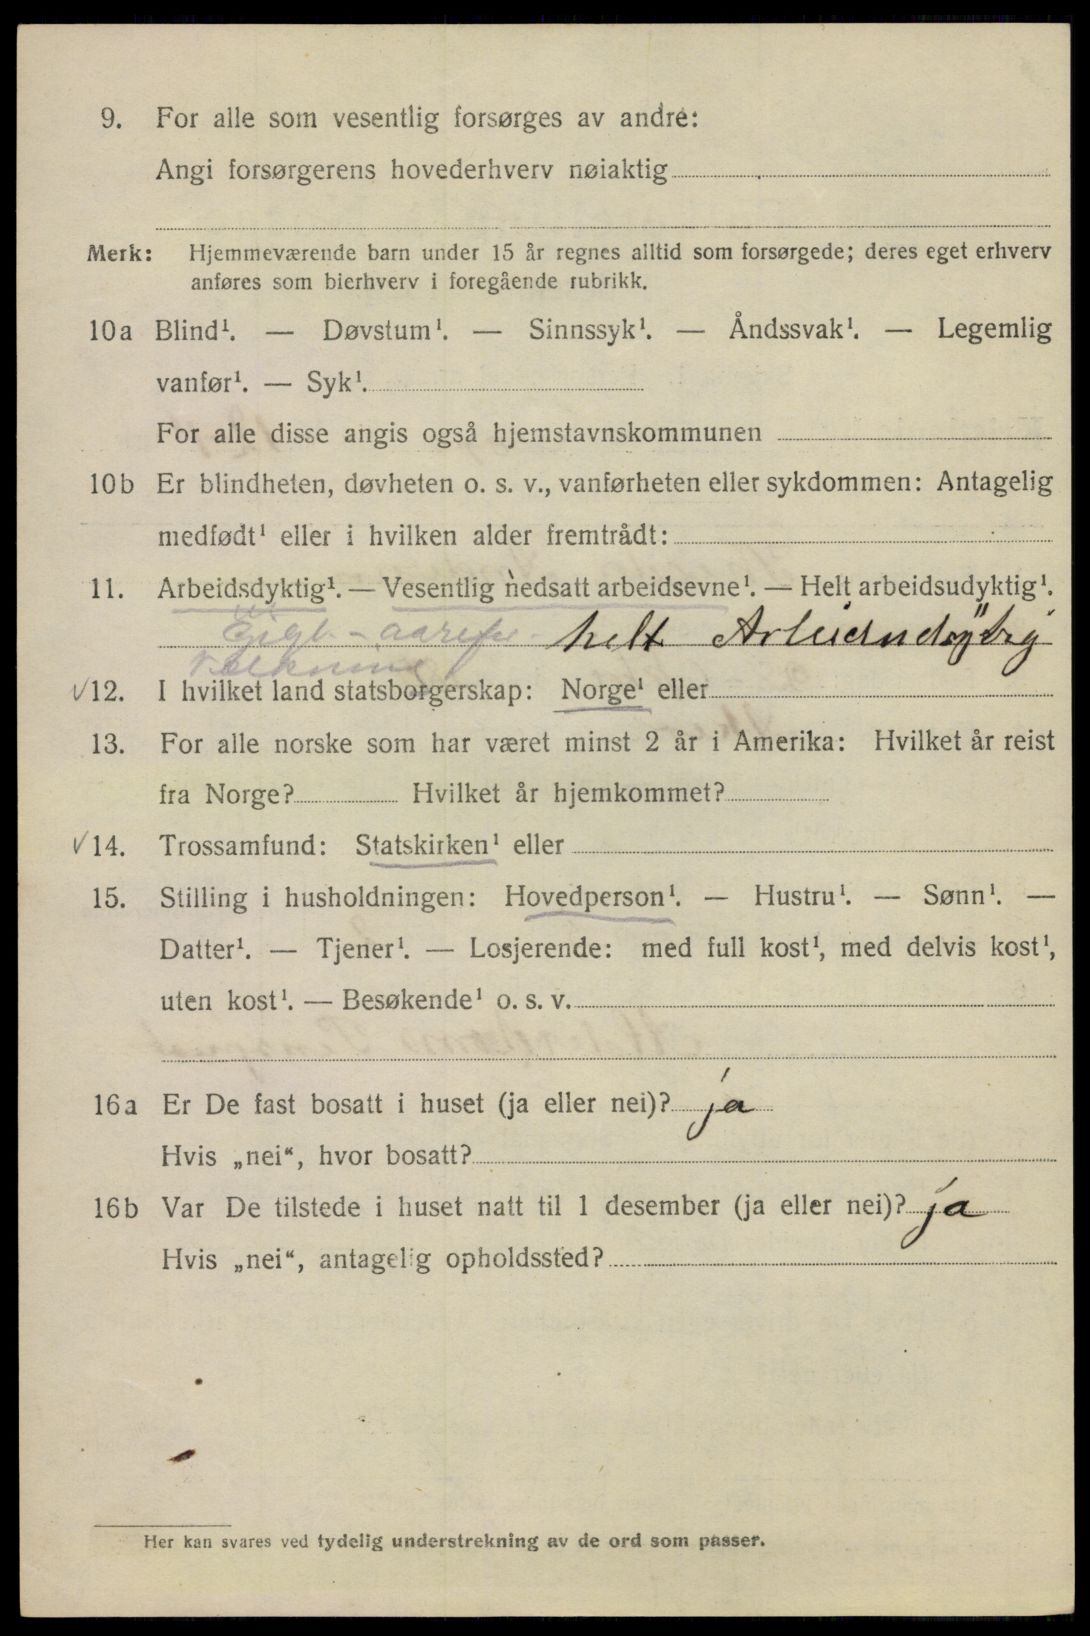 9. For alle som vesentlig forsørges av andre:
Angi forsørgerens hovederhverv nøiaktig
Merk: Hjemmeværende barn under 15 år regnes alltid som forsørgede; deres eget erhverv
anføres som bierhverv i foregående rubrikk.
10a Blind¹. — Døvstum¹. — Sinnssyk¹. — Åndssvak¹. — Legemlig
vanfør¹. — Syk¹.
For alle disse angis også hjemstavnskommunen
10b Er blindheten, døvheten o. s. v., vanførheten eller sykdommen: Antagelig
medfødt¹ eller i hvilken alder fremtrådt:
11. Arbeidsdyktig¹. — Vesentlig nedsatt arbeidsevne¹. — Helt arbeidsudyktig¹.
helt
12. I hvilket land statsborgerskap: Norge¹ eller
13. For alle norske som har været minst 2 år i Amerika: Hvilket år reist
fra Norge? Hvilket år hjemkommet?
14. Trossamfund: Statskirken¹ eller
15. Stilling i husholdningen: Hovedperson¹. — Hustru¹. — Sønn¹. —
Datter¹. — Tjener¹. — Losjerende: med full kost¹, med delvis kost¹,
uten kost¹. — Besøkende¹ o. s. v.
16a Er De fast bosatt i huset (ja eller nei)? ja
Hvis „nei“, hvor bosatt?
16b Var De tilstede i huset natt til 1 desember (ja eller nei)? ja
Hvis „nei“, antagelig opholdssted?
Her kan svares ved tydelig understrekning av de ord som passer.